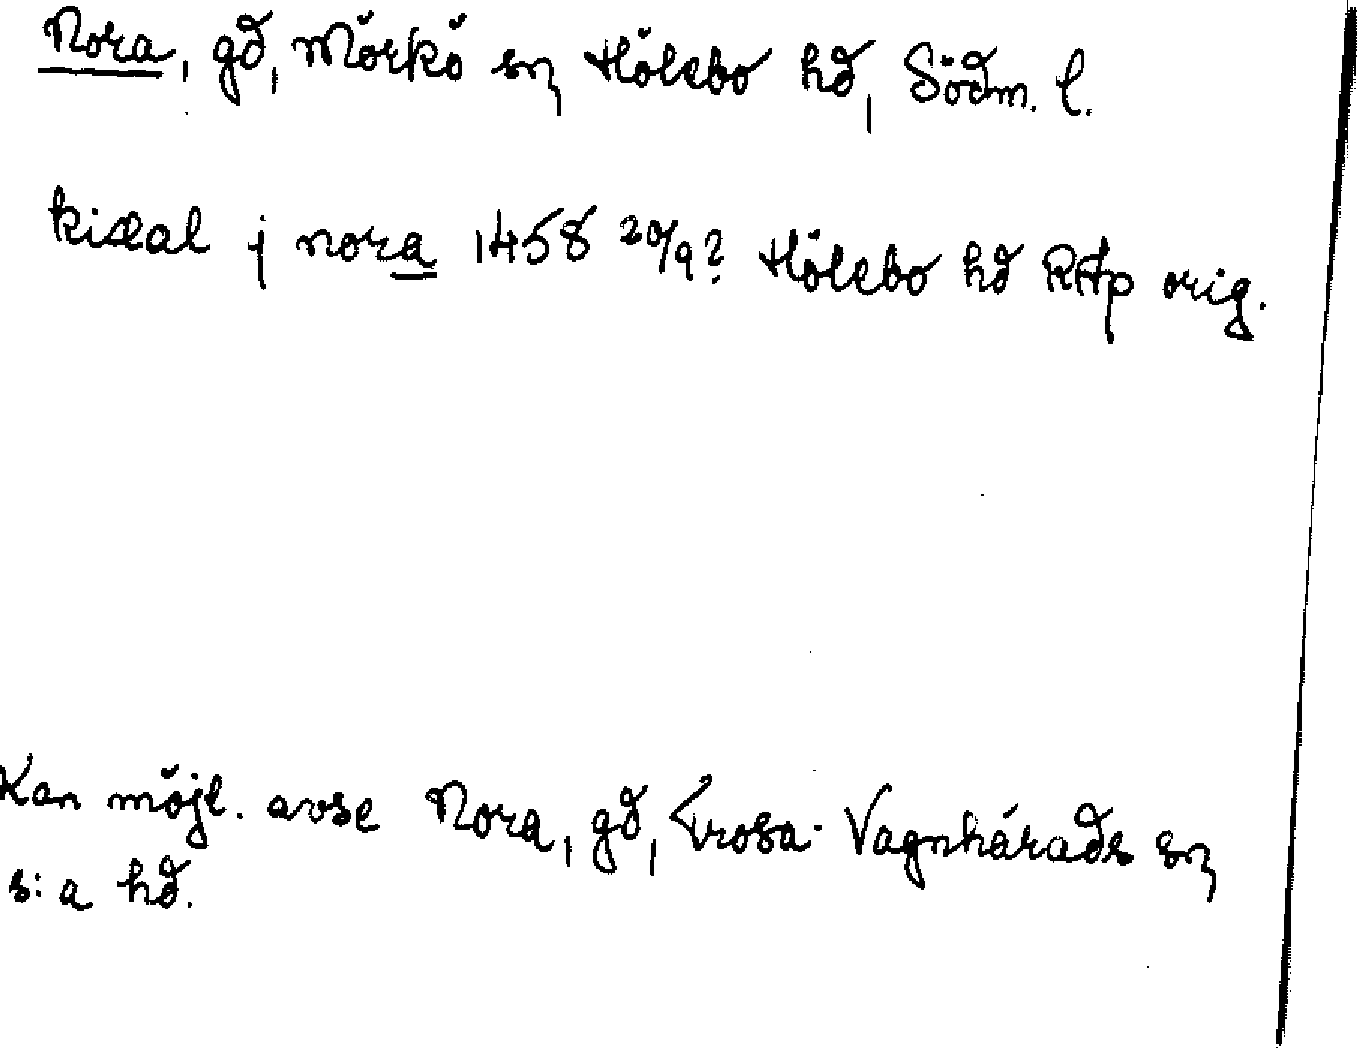 Nora, gd, Mörkö sn, Hölebo hd, Södm. l.
kixal j nora 1458 20/9? Hölebo hd RAp orig.
Kan möjl. avse Nora, gd, Trosa-Vagnhärads sn,
s:a hd.